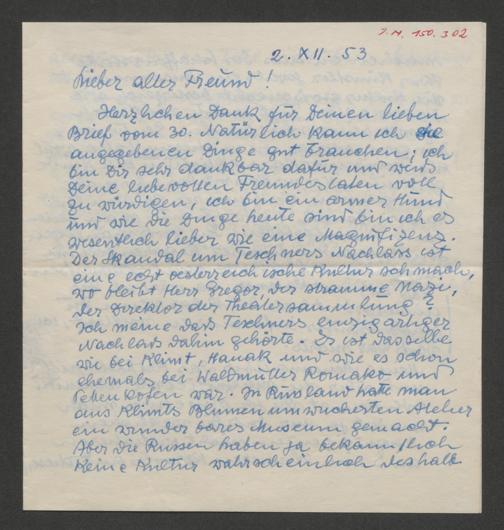 I.N. 150.302
2. XII. 53
Lieber alter Freund!
Herzlichen Dank für Deinen lieben
Brief vom 30. Natürlich kann ich die
angegebenen Dinge gut brauchen; ich
bin Dir sehr dankbar dafür und weiss
Deine liebevollen Freundesgaben voll
zu würdigen, ich bin ein armer Hund
und wie die Dinge heute sind bin ich es
wesentlich lieber wie eine Magnifizenz.
Der Skandal um Teschners Nachlass ist
eine echt oesterreichische Kulturschmach,
wo bleibt Herr Gregor, der stramme Nazi,
der Direktor der Theatersammlung?
Ich meine dass Teschners einzigartiger
Nachlass dahin gehörte. Es ist dasselbe
wie bei Klimt, Hanak und wie es schon
ehemals bei Waldmüller Romako und
Pettenkofen war. In Russland hätte man
aus Klimts Blumen umwucherten Atelier
ein wunderbares Museum gemacht.
Aber die Russen haben ja bekanntlich
keine Kultur wahrscheinlich deshalb